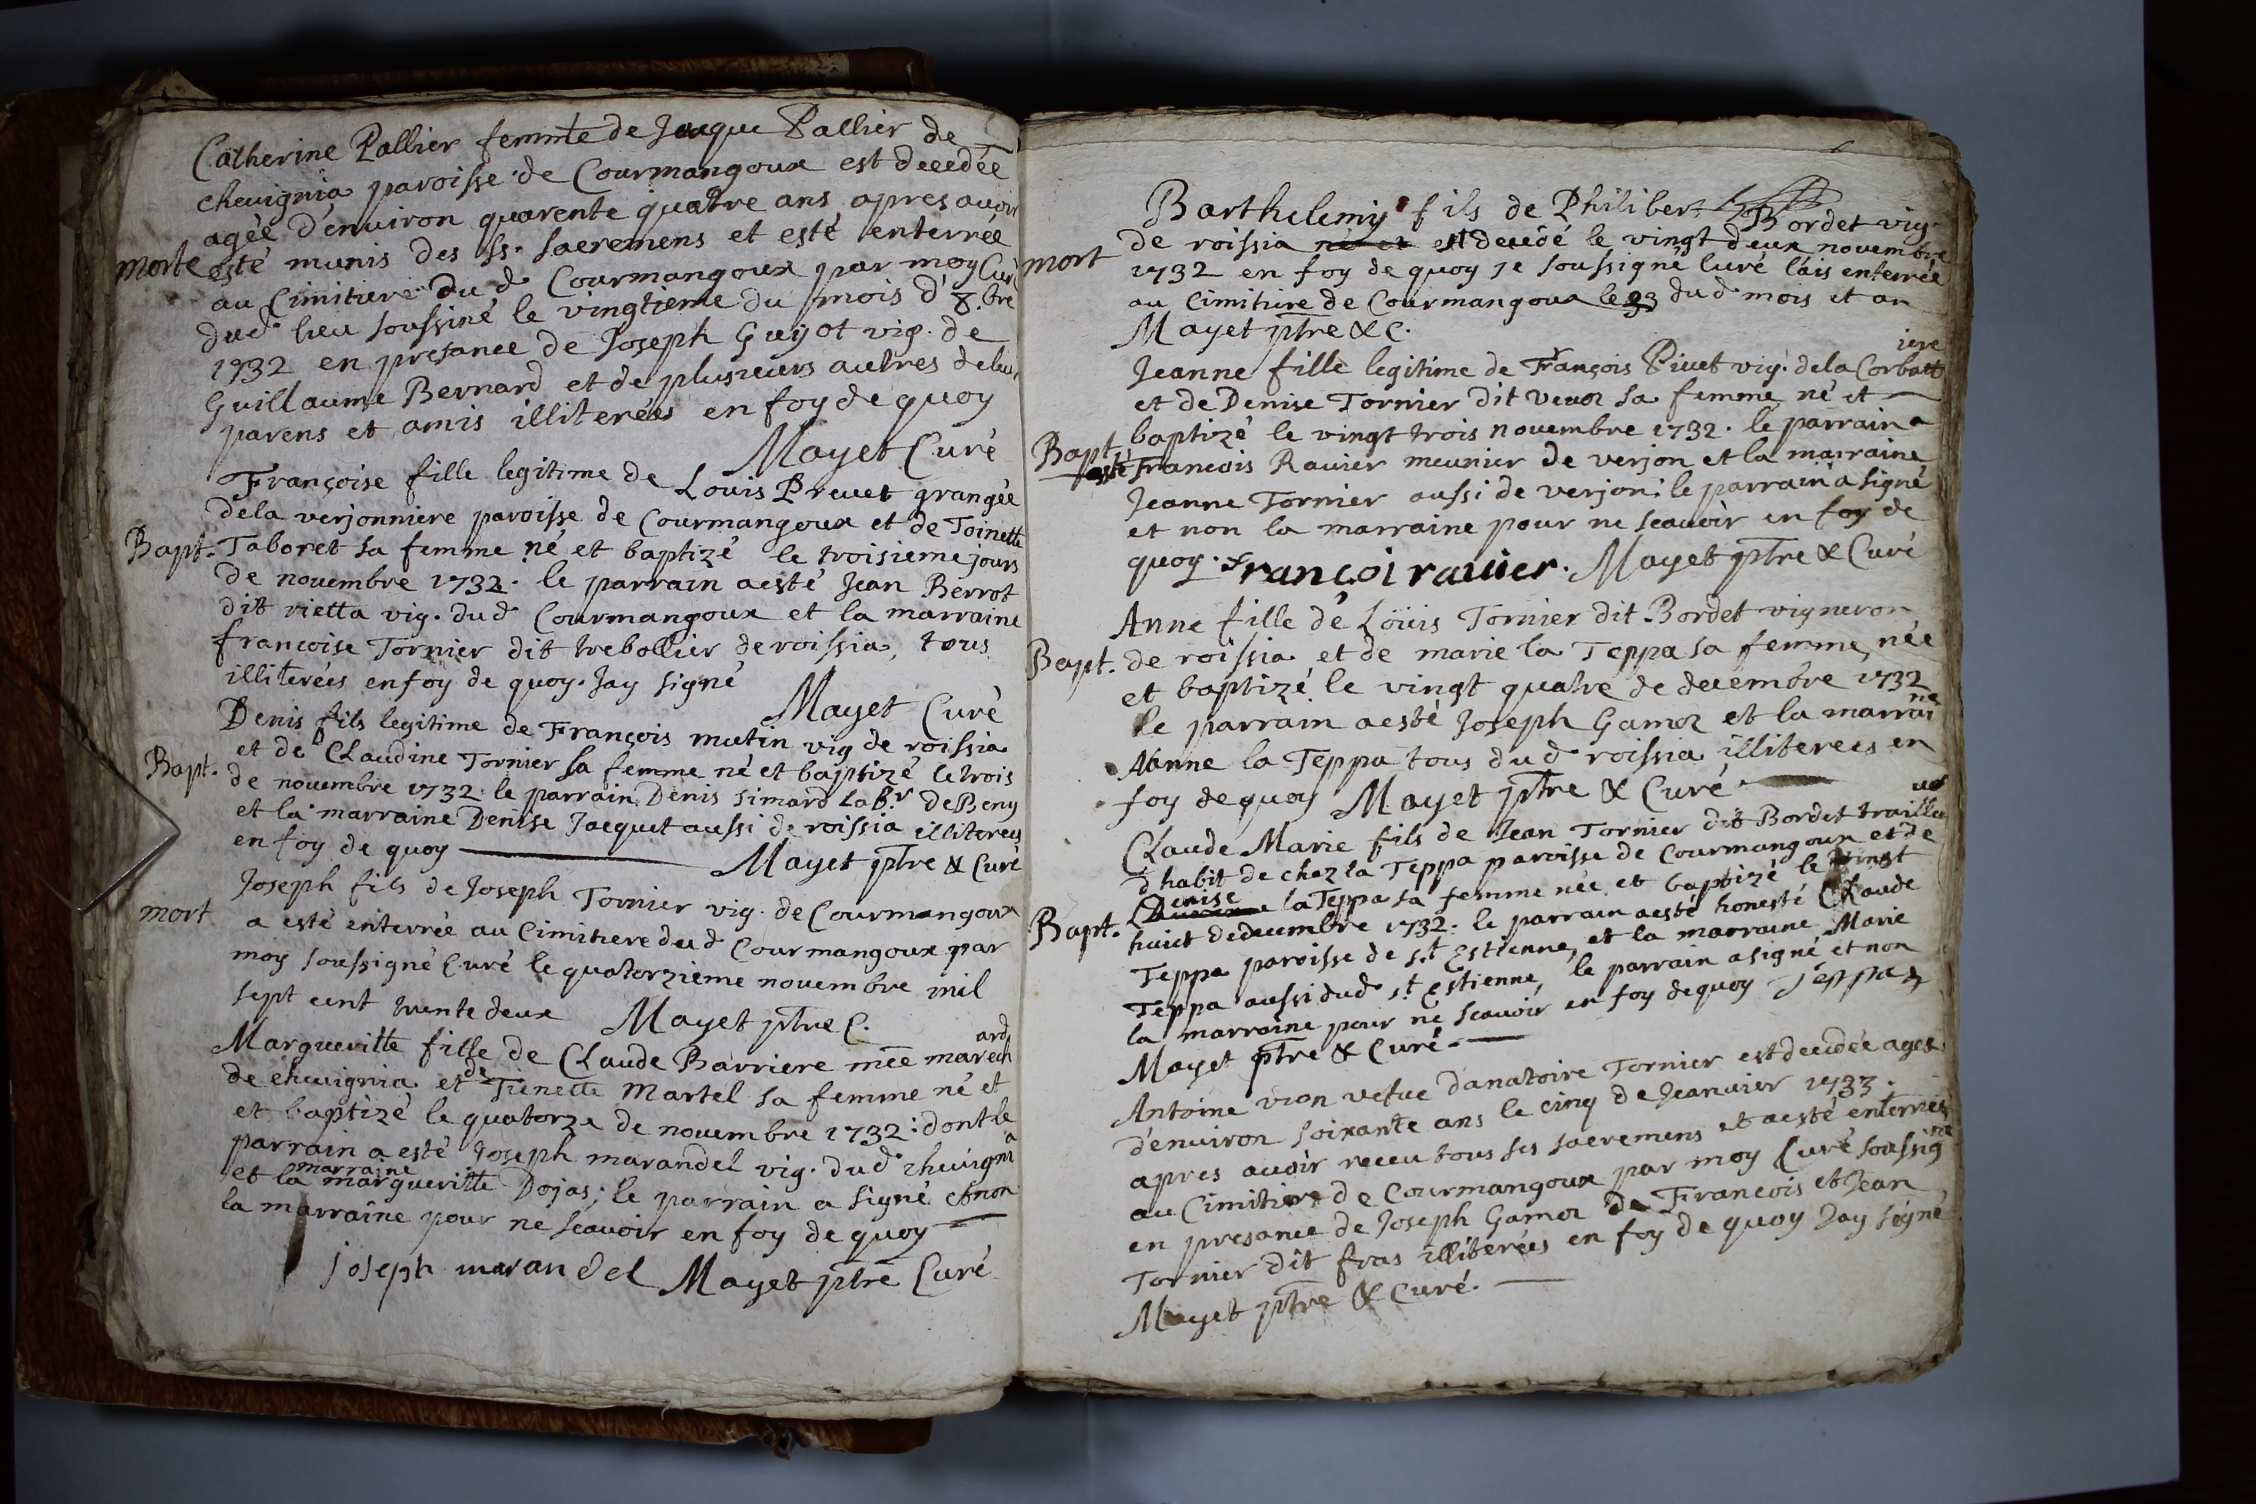 Catherine Pallier femme de Jacque Pallier de
chevignia paroisse de Courmangoux est decedée
agéé d'environ quarente quatre ans apres avoir
morte esté munis des ss. sacremens et esté enterrée
au Cimitiere du d. Courmangoux par moy Curé
dud. lieu soussiné le vingtieme du mois d'8.bre
1732 en presance de Joseph Guÿot vig. de
Guillaume Bernard et de plusieurs autres de leurs
parens et amis illiterées en foy de quoy
Mayet Curé
Françoise fille legitime de Louis Prevet grangée
dela verjonniere paroisse de Courmangoux et de Toinette
Bapt. Taboret sa femme né et baptizé le troisieme jours
de novembre 1732. le parrain a esté Jean Berrot
dit vietta vig. dud. Courmangoux et la marraine
francoise Tornier dit trebollier de roissia, tous
illiterées en foy de quoy. Jay signé
Mayet Curé
Denis fils legitime de François mutin vig de roissia
et de Claudine Tornier sa femme né et baptizé le trois
Bapt. de novembre 1732. le parrain Denis Simard Lab.r de Beny
et la marraine Denise Jacquet aussi de roissia illiterees
en foy de quoy Mayet ptre & Curé
Joseph fils de Joseph Tornier vig. de Courmangoux
mort a esté enterrée au Cimitiere dud. Courmangoux par
moy soussigné Curé le quatorzieme novembre mil
sept cent trente deux Mayet ptre C.
Margueritte fille de Claude Barriere mee marechard
de chevignia et de Tienette Martel sa femme né et
et baptizé le quatorze de novembre 1732: dont le
parrain a esté Joseph marandel vig. dud. chevignia
et la marraine margueritte Dojas; le parrain a signé et non
la marraine pour ne scavoir en foy de quoy
joseph marandel Mayet ptre Curé
Barthelemÿ fils de Philibert Bordet vig.
mort de roissia né et est decedé le vingt deux novembre
1732 en foy de quoy je soussigné Curé láis enterrée
au Cimitiere de Courmangoux le 23 dud. mois et an
Mayet ptre & C.
Jeanne fille legitime de François Pivet vig. dela Corbattiere
et de Denise Tornier dit veuoz sa femme né et
baptizé le vingt trois novembre 1732. le parrain a
Bapt. esté Francois Ravier meunier de verjon et la marraine
Jeanne Tornier aussi de verjon: le parrain a signé
et non la marraine pour ne scavoir en foy de
quoy. Françoi ravier. Mayet ptre & Curé
Anne fille de Loüis Tornier dit Bordet vigneron
Bapt. de roissia et de marie la Teppa sa femme, née
et baptizé le vingt quatre de decembre 1732
le parrain a esté Joseph Gamoz et la marraine
Anne la Teppa tous dud. roissia illiterees en
foy de quoy Mayet ptre & Curé
Claude Marie fils de Jean Tornier dit Bordet trailleur
d'habit de chez la Teppa paroisse de Courmangoux et de
Denise la Teppa sa femme née et baptizé le vingt
Bapt. huict de decembre 1732. le parrain a esté honesté Claude
Teppa paroisse de s.t Estienne, et la marraine Marie
Teppa aussi dud. s.t Estienne, le parrain a signé et non
la marraine pour ne scavoir en foy de quoy Teppaz
Mayet ptre & Curé
Antoine vion vefve d'anatoire Tornier est decedée agée
d'environ soixante ans le cinq de Jeanvier 1733.
apres avoir receu tous ses sacremens et a esté enterrée
au Cimitiere de Courmangoux par moy Curé soussigné
en presance de Joseph Gamoz de Francois et Jean
Tornier dit fras illiterées en foy de quoy Jay signé
Mayet ptre & Curé.